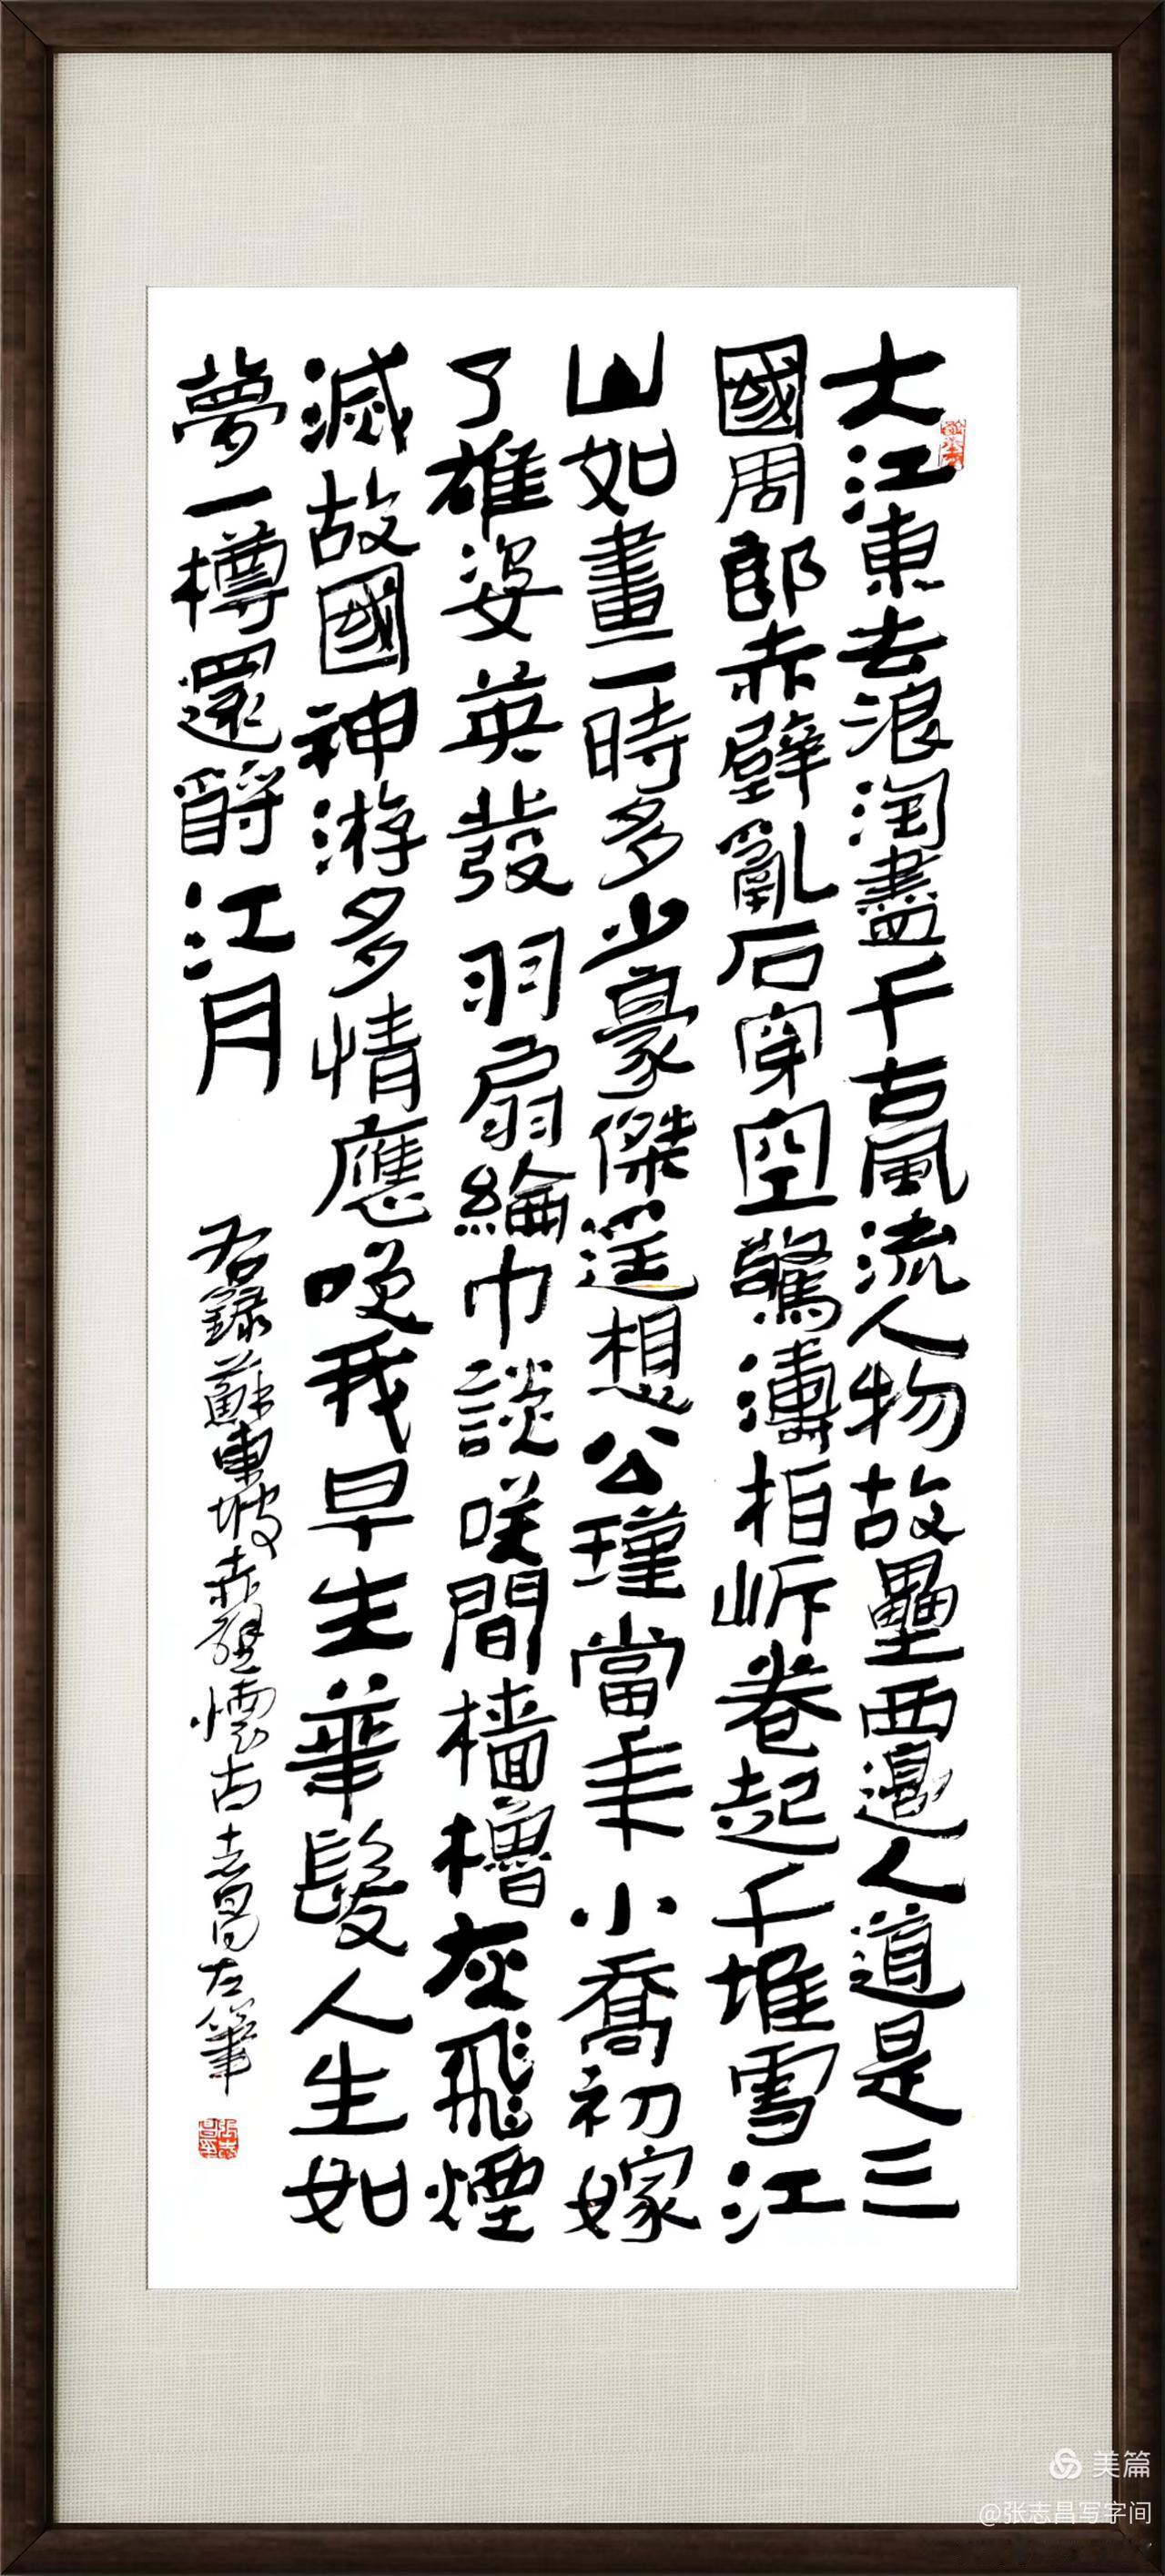 大江東去浪淘盡千古風流人物故壘西邊人道是三
國周郎赤壁亂石穿空驚濤拍岍卷起千堆雪江
山如畫一時多少豪傑遥想公瑾當年小喬初嫁
了雄姿英發羽扇綸巾談咲間檣櫓灰飛煙
滅故國神游多情應咲我早生華髮人生如
夢一樽還酹江月
右錄蘇東坡赤壁懷古志昌左筆
美篇
@张志昌写字间